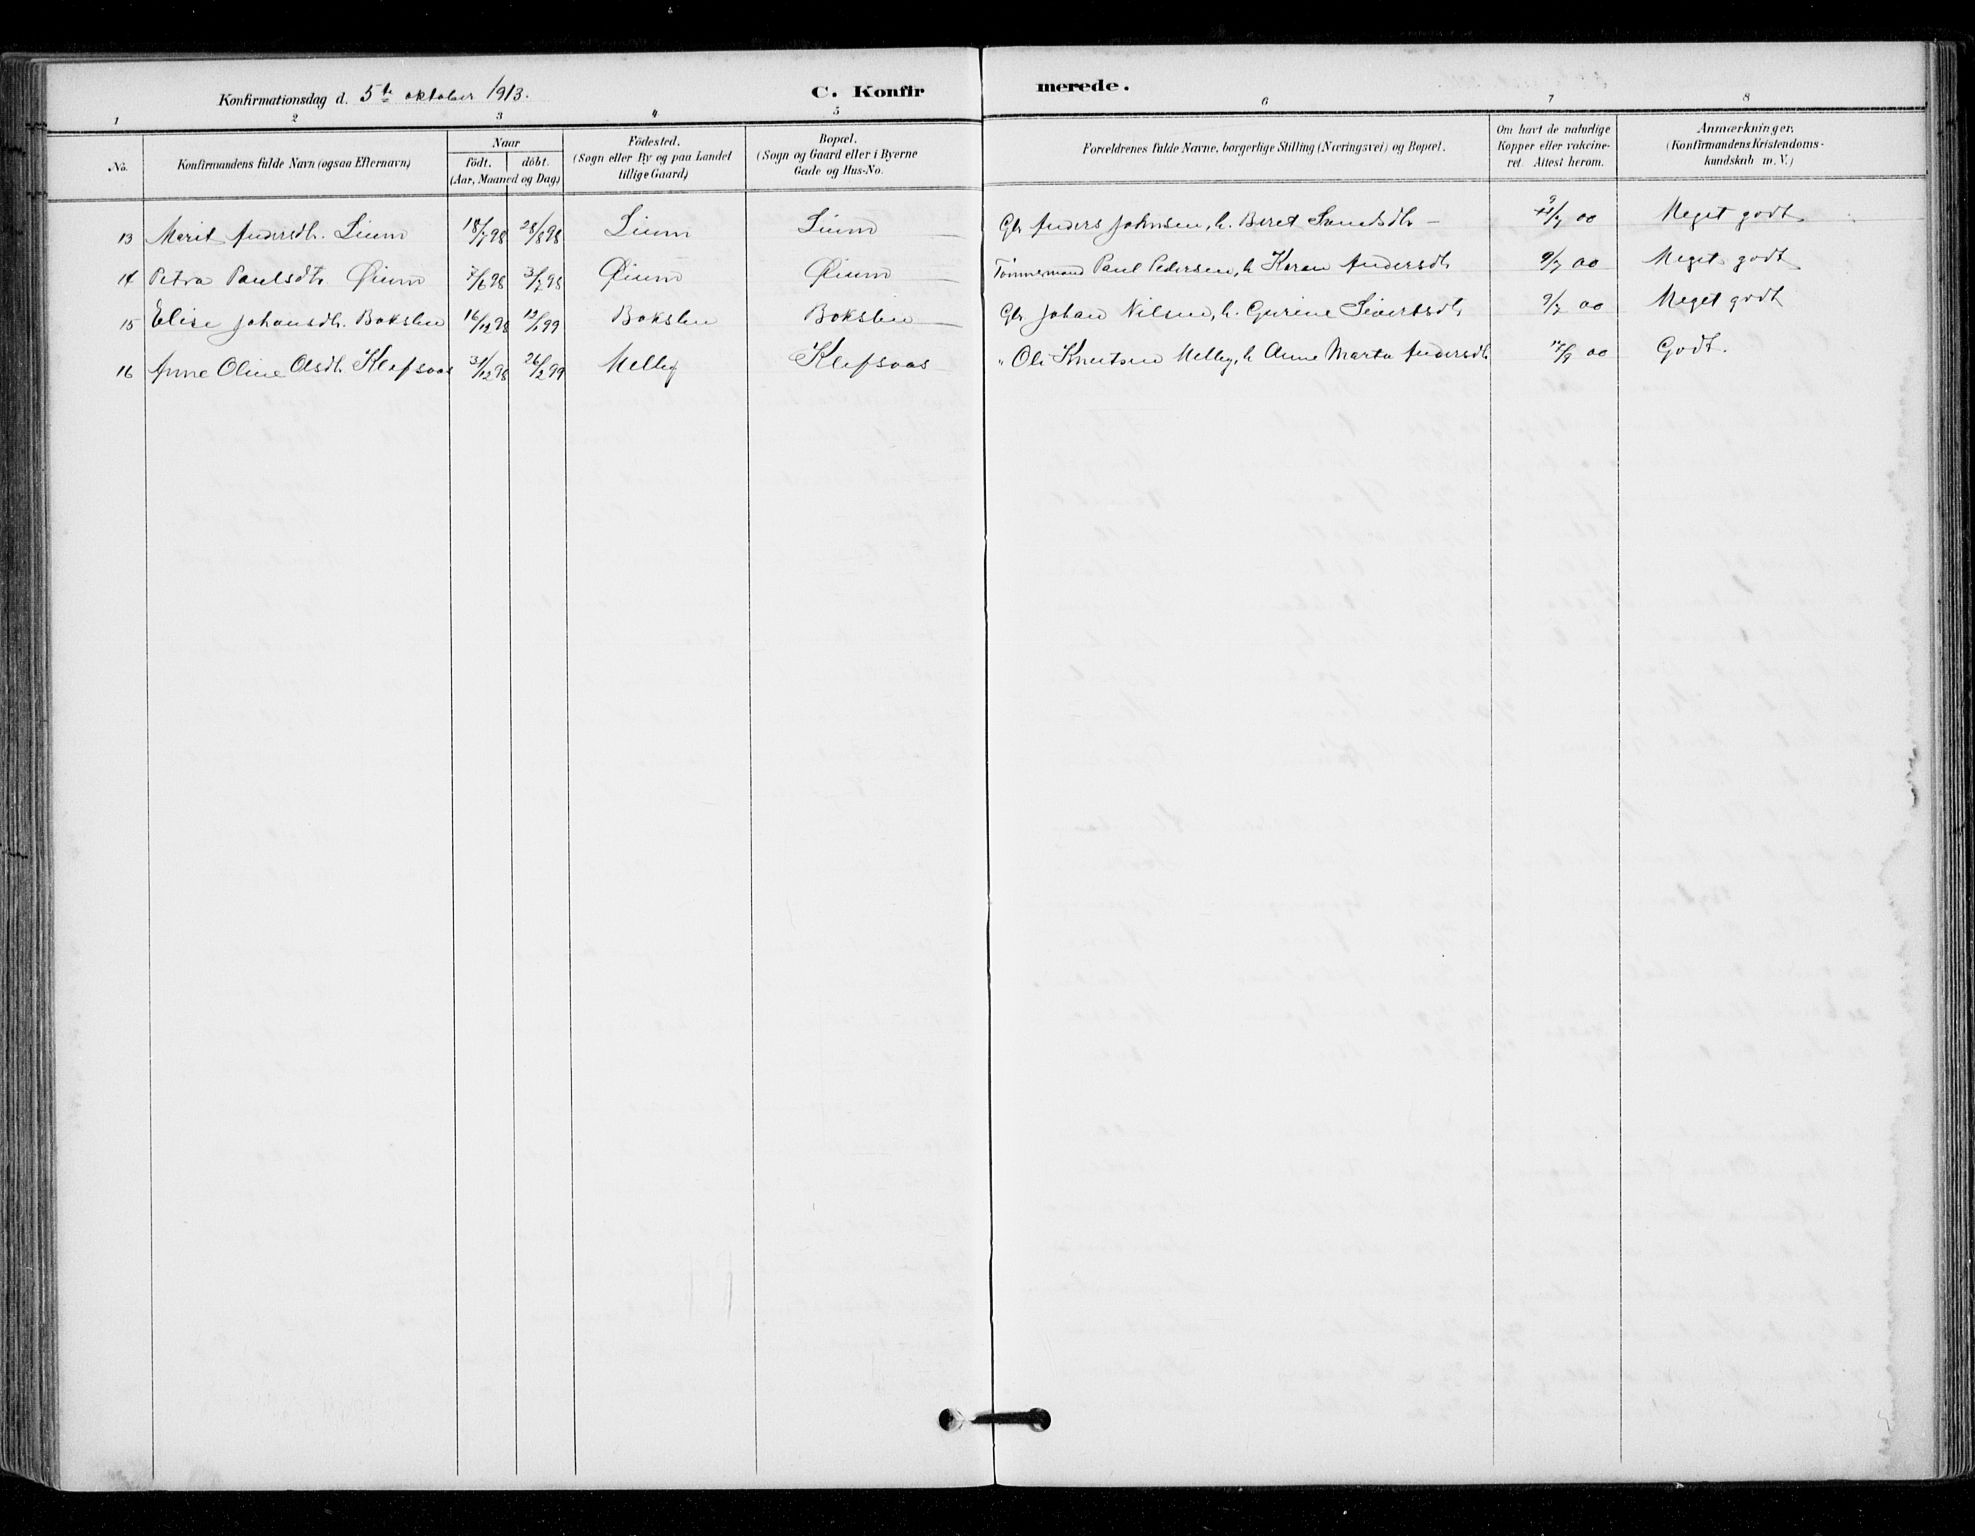 Konfirmationsdag d. 5te oktober 1913. C. Konfirmerede.
1 2 3 4 5 6 7 8
No. Konfirmandens fulde Navn (ogsaa Efternavn) Naar födt. döbt. (Aar, Maaned og Dag) Födested. (Sogn eller By og paa Landet tillige Gaard) Bopæl. (Sogn og Gaard eller i Byerne Gade og Hus-No. Forældrenes fulde Navne, borgerlige Stilling (Næringsvei) og Bopæl. Om havt de naturlige Kopper eller vakcineret. Attest herom. Anmærkninger. (Konfirmandens Kristendomskundskab m. V.)
13 Marit Andersdtr. Lium 18/7 98 28/8 98 Lium Lium Gbr Anders Johnsen, h. Beret 9/7 00 Meget godt
14 Petra Paulsdtr. Øium 7/6 98 3/7 98 Øium Øium Tömmermand Paul Pedersen, h. Karen Andersdtr 9/7 00 Meget godt
15 Elise Johansdtr. Bakslen 16/12 98 12/1 99 Bakslen Bakslen Gbr Johan Nilsen, h. Gurine Sivertsdtr 9/7 00 Meget godt
16 Anne Oline Olsdtr. Klefsaas 31/12 98 26/2 99 Melby Klefsaas " Ole Knutsen Melby, h. Anne Marta Andersdtr 17/9 00 Godt.